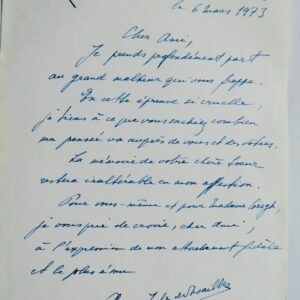 le 6 mars 1973
Cher Ami,
Je prends profondément part
au grand malheur qui vous frappe.
En cette épreuve si cruelle,
je tiens à ce que vous sachiez combien
ma pensée va auprès de vous et des vôtres.
La mémoire de votre chère Sœur
restera inaltérable en mon affection.
Pour vous-même et pour Madame
je vous prie de croire, cher ami,
à l'expression de mon attachement fidèle
et le plus ému
de Noailles